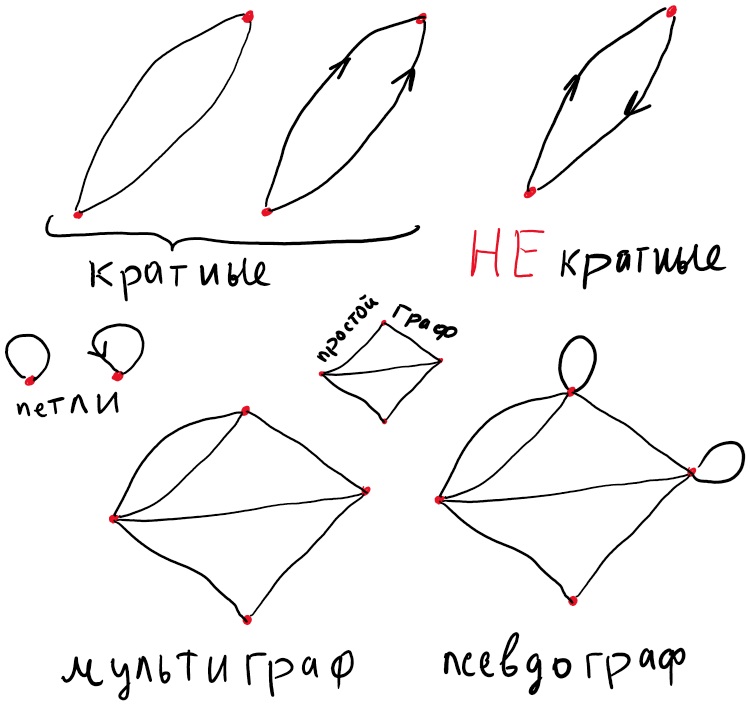 кратные
НЕ кратные
простой граф
петли
мультиграф
псевдограф